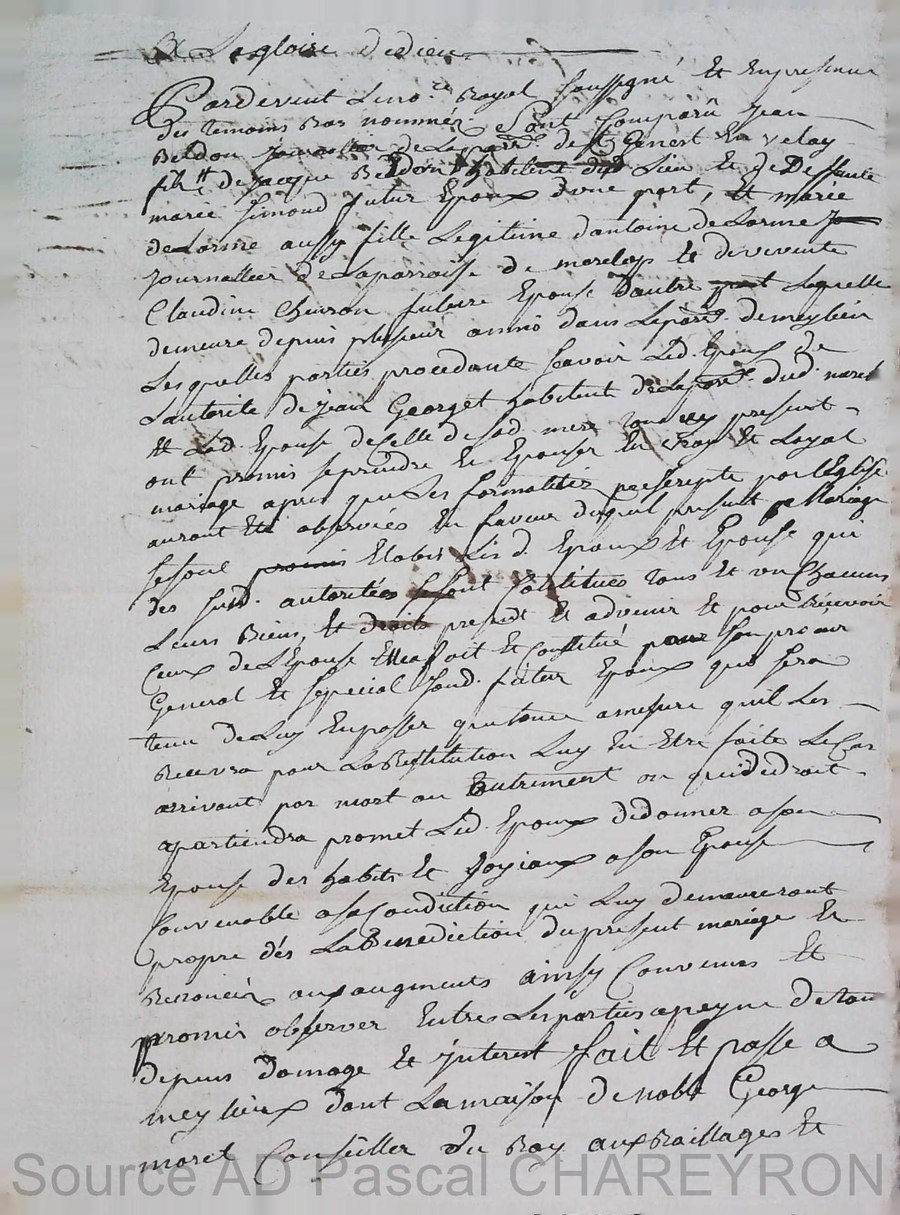 A La gloire de dieu
Pardevent Le no.re Royal soussigné et en presence
des temoins Bas nommés sont comparû Jean
Beldon journallier de La parr.e de S.t Genest En velay
fils de jacque Beldon habitent du Lieu et de Deffunte
marie Simond futur Epoux d'une part, et marie
deLorme aussy fille Legitime d'antoine de Lorme
journallier de La parroisse de et de vivente
Claudine future Epouse d'autre part Laquelle
demeure depuis plusieur anné dans La parr.e de meylieu
Les quelles parties procedante scavoir Led. Epoux de
L'autorite de jean Georget habitent de La parr.e dud.
et Lad. Epouse de celle de sad. mere tous icy present
ont promis se prendre et Epouser En vray et Loyal
mariage apres que Les formalités prescripte par l'Eglise
auront Eté observées En faveur duquel present Mariage
se sont promis Les d. Epoux et Epouse qui
des susd. autorités se sont constitués tous et un chacuns
Leurs Biens, et droits present et advenir et pour Récevoir
Ceux de L'Epouse Elle a fait et constitué pour son procur
General et special sond. futur Epoux qui sera
tenu de Luy En passer quitance a mesure quil Les
Recevra pour La Restitution Luy En Etre faite Le Cas
arrivant par mort ou autrement ou qui de droit
apartiendra promet Led. Epoux de donner a son
Epouse des habits et Joyiaux a son Epouse
Convenable a sa Condiction qui Luy demeureront
propre dés La Benediction du present mariage et
Renoncée aux augments ainsy Convenus et
promis observer Entre Les parties a peyne de tou
depens domage et jnterest fait et passé a
meylieux dant La maison de noble George
moret Conseiller du Roy aux Baillages et
Source AD Pascal CHAREYRON